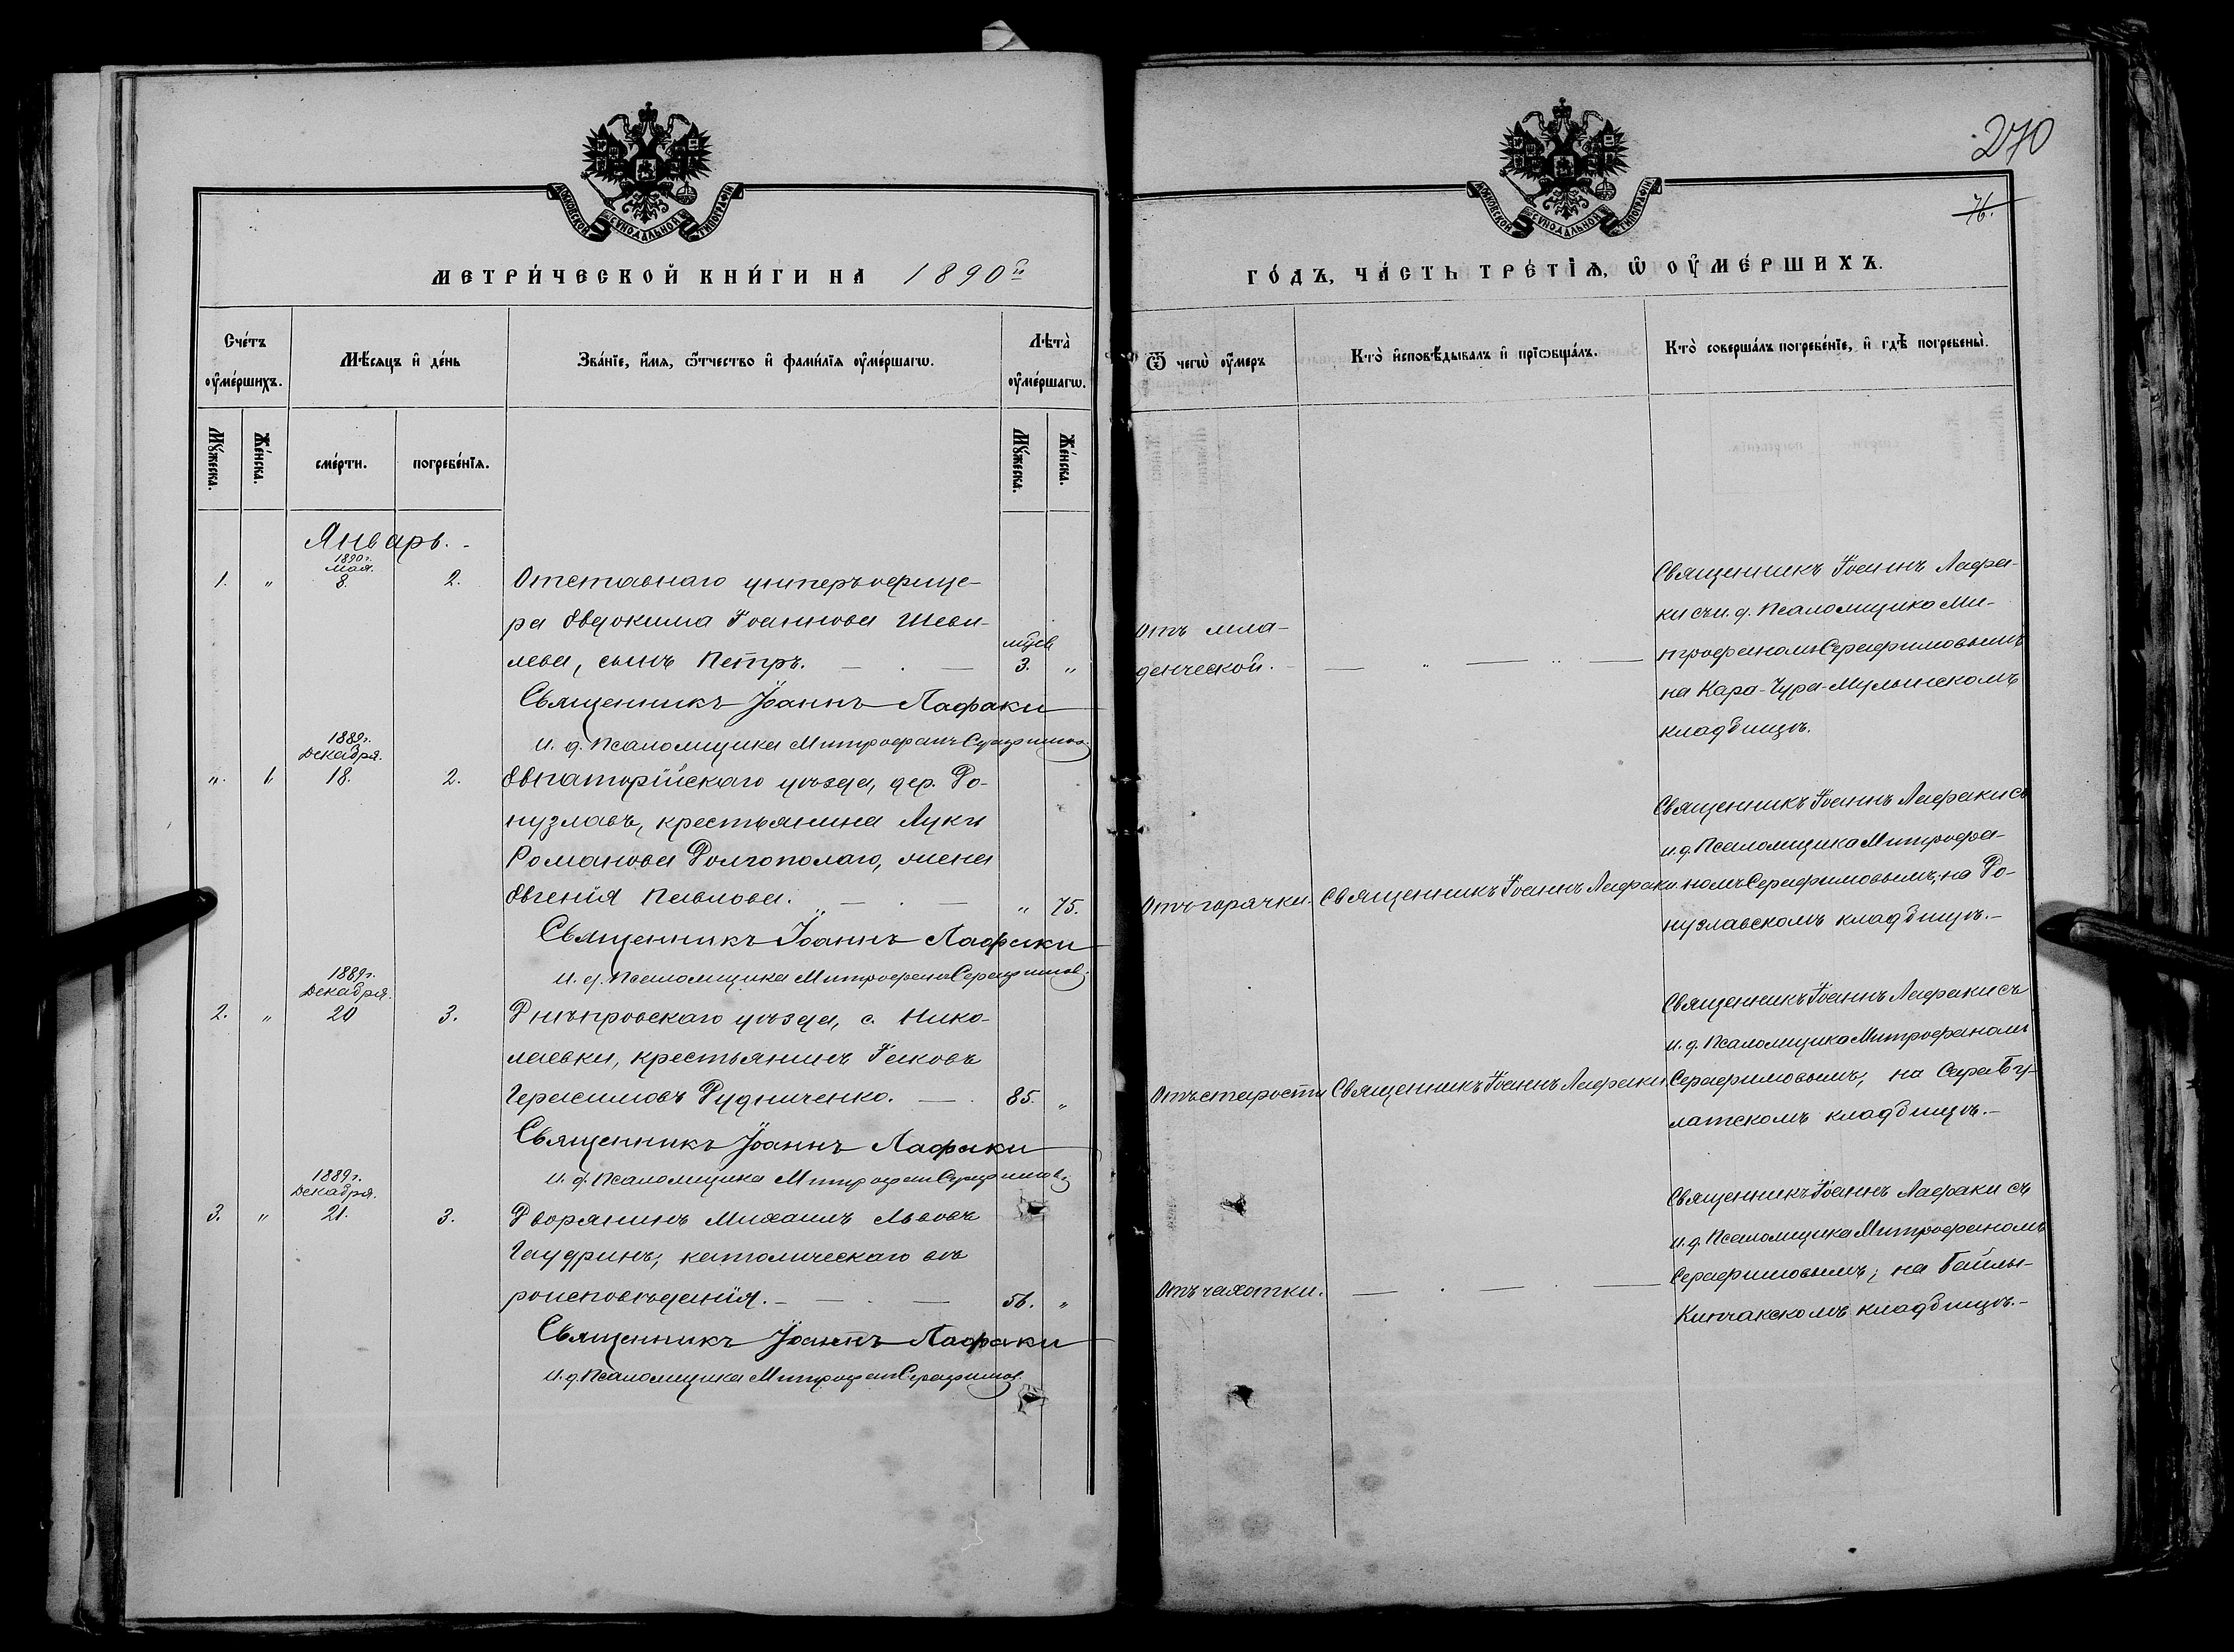 МОСКОВСКОЙ СѴНОДАЛЬНОЙ ТИПОГРАФІИ
МЕТРИ́ЧЕСКОЙ КНИ́ГИ НА 1890й
Сче́тъ оу҆ме́ршихъ.
Мѣ́сяцъ и҆ де́нь
Зва́нїе, и҆́мя, ѻ҆́тчество и҆ фами́лїя оу҆ме́ршагѡ.
Лѣта̀ оу҆ме́ршагѡ.
Мꙋ́жеска. Же́нска. сме́рти. погребе́нїѧ. Мꙋ́жеска. Же́нска.
Январь.
1890 г.
Мая.
1. " 8. 2. Отставнаго унтеръ офице-
ра Евдокима Іоаннова Шеви-
лева, сынъ Петръ. мѣс. 3. "
Священникъ Іоаннъ Лафаки
И. д. Псаломщика Митрофанъ Серафимовъ
1889 г.
Декабря.
" 1 18. 2. Евпаторійскаго уѣзда, дер. До-
нузлавъ, крестьянина Луки
Романова Долгополаго, жена
Евгенія Павлова. " 75.
Священникъ Іоаннъ Лафаки
И. д. Псаломщика Митрофанъ Серафимовъ
1889 г.
Декабря.
2. " 20 3. Днѣпровскаго уѣзда, с. Нико-
лаевки, крестьянинъ Іаковъ
Герасимовъ Рудниченко. 85. "
Священникъ Іоаннъ Лафаки
И. д. Псаломщика Митрофанъ Серафимовъ
1889 г.
Декабря.
3. " 21. 3. Дворянинъ Михаилъ Львовъ
Гаудринъ, католическаго вѣ
роисповѣданія. 56. "
Священникъ Іоаннъ Лафаки
И. д. Псаломщика Митрофанъ Серафимов
270
76.
МОСКОВСКОЙ СѴНОДАЛЬНОЙ ТИПОГРАФІИ
ГО́ДЪ, ЧА́СТЬ ТРЕ́ТІѦ, Ѡ҆ ОУ҆МЕ́РШИХЪ.
Ѿ чегѡ̀ оу҆́меръ
Кто̀ и҆сповѣ́дывалъ и҆ прїѡбща́лъ.
Кто̀ соверша́лъ погребе́нїе, и҆ гдѣ̀ погребены̀.
Отъ мла-
денческой.
Священникъ Іоаннъ Лафа-
ки съ и. д. Псаломщика Ми-
трофаномъ Серафимовымъ
на Кара-Чура-Мульинскомъ
кладбищѣ.
Отъ горячки. Священникъ Іоаннъ Лафаки.
Священникъ Іоаннъ Лафаки съ
и. д. Псаломщика Митрофа-
номъ Серафимовымъ, на До-
нузлавскомъ кладбищѣ.
Отъ старости Священникъ Іоаннъ Лафаки.
Священникъ Іоаннъ Лафаки съ
и. д. Псаломщика Митрофаномъ
Серафимовымъ, на Сара Бу-
латскомъ кладбищѣ.
Отъ чахотки.
Священникъ Іоаннъ Лафаки съ
и. д. Псаломщика Митрофаномъ
Серафимовымъ, на Байлы-
Кипчакскомъ кладбищѣ.